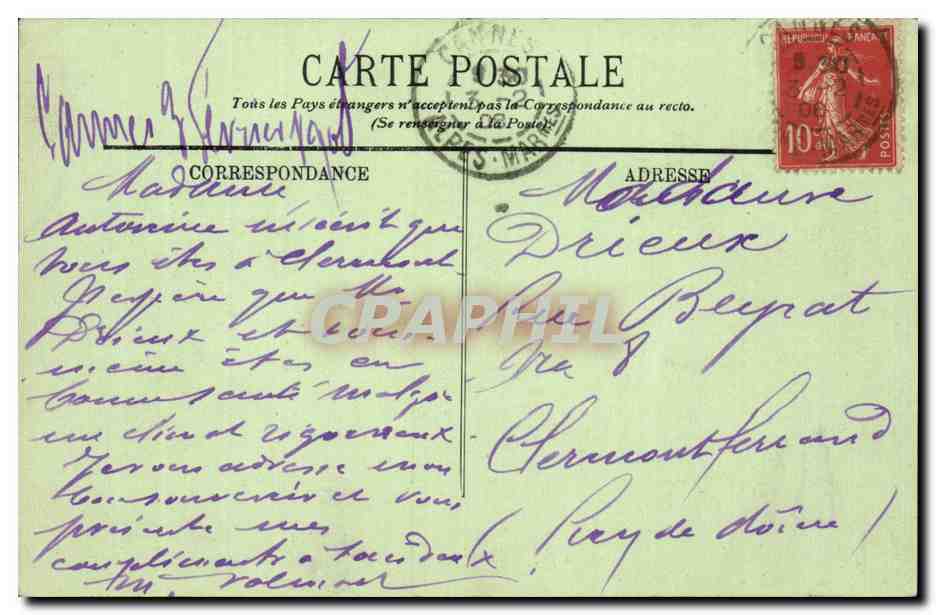 CARTE POSTALE
Tous les Pays étrangers n'acceptent pas la Correspondance au recto.
(Se renseigner à la Poste)
Cannes 3 Février 1908
CORRESPONDANCE
Madame
Antonine m'écrit que
vous êtes à Clermont
J'espère que Mr
Drieux et vous
même êtes en
bonne santé malgré
un climat rigoureux
Je vous adresse mon
bon souvenir et vous
présente mes
compliments à tous deux
ADRESSE
Madame
Drieux
Rue Beyrat
8
Clermont Ferrand
(Puy de dôme)
CANNES
3 -2
08
ALPES-MARMES
REPUBLIQUE FRANÇAISE
10
POSTES
CPAPHIL